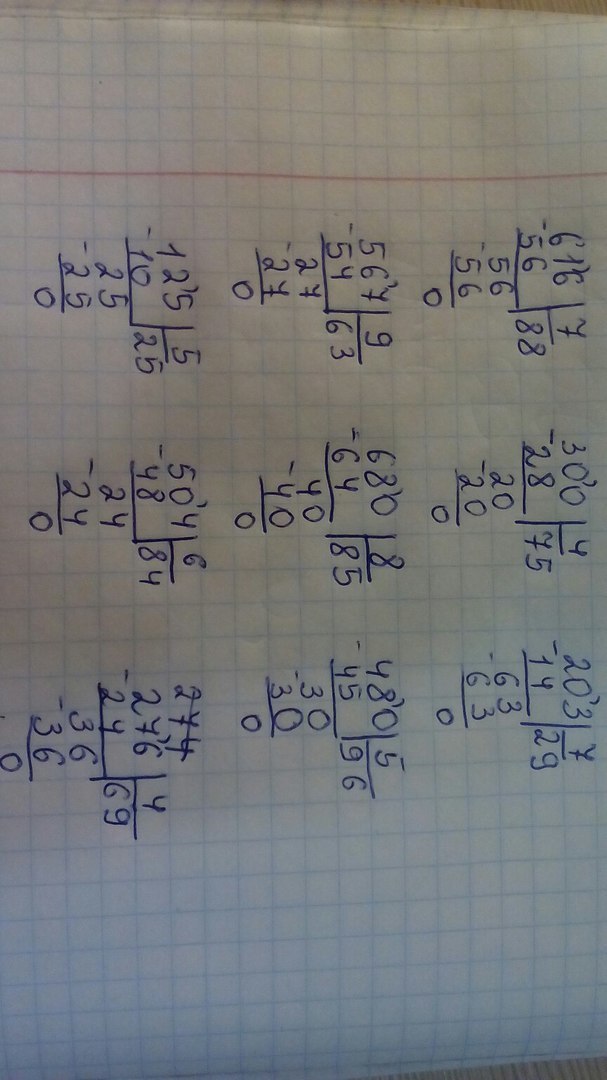 616 7
-56 88
56
-56
0
300 4
-28 75
20
-20
0
203 7
-14 29
63
-63
0
567 9
-54 63
27
-27
0
680 8
-64 85
40
-40
0
480 5
-45 96
30
-30
0
125 5
-10 25
25
-25
0
504 6
-48 84
24
-24
0
276 4
-24 69
36
-36
0